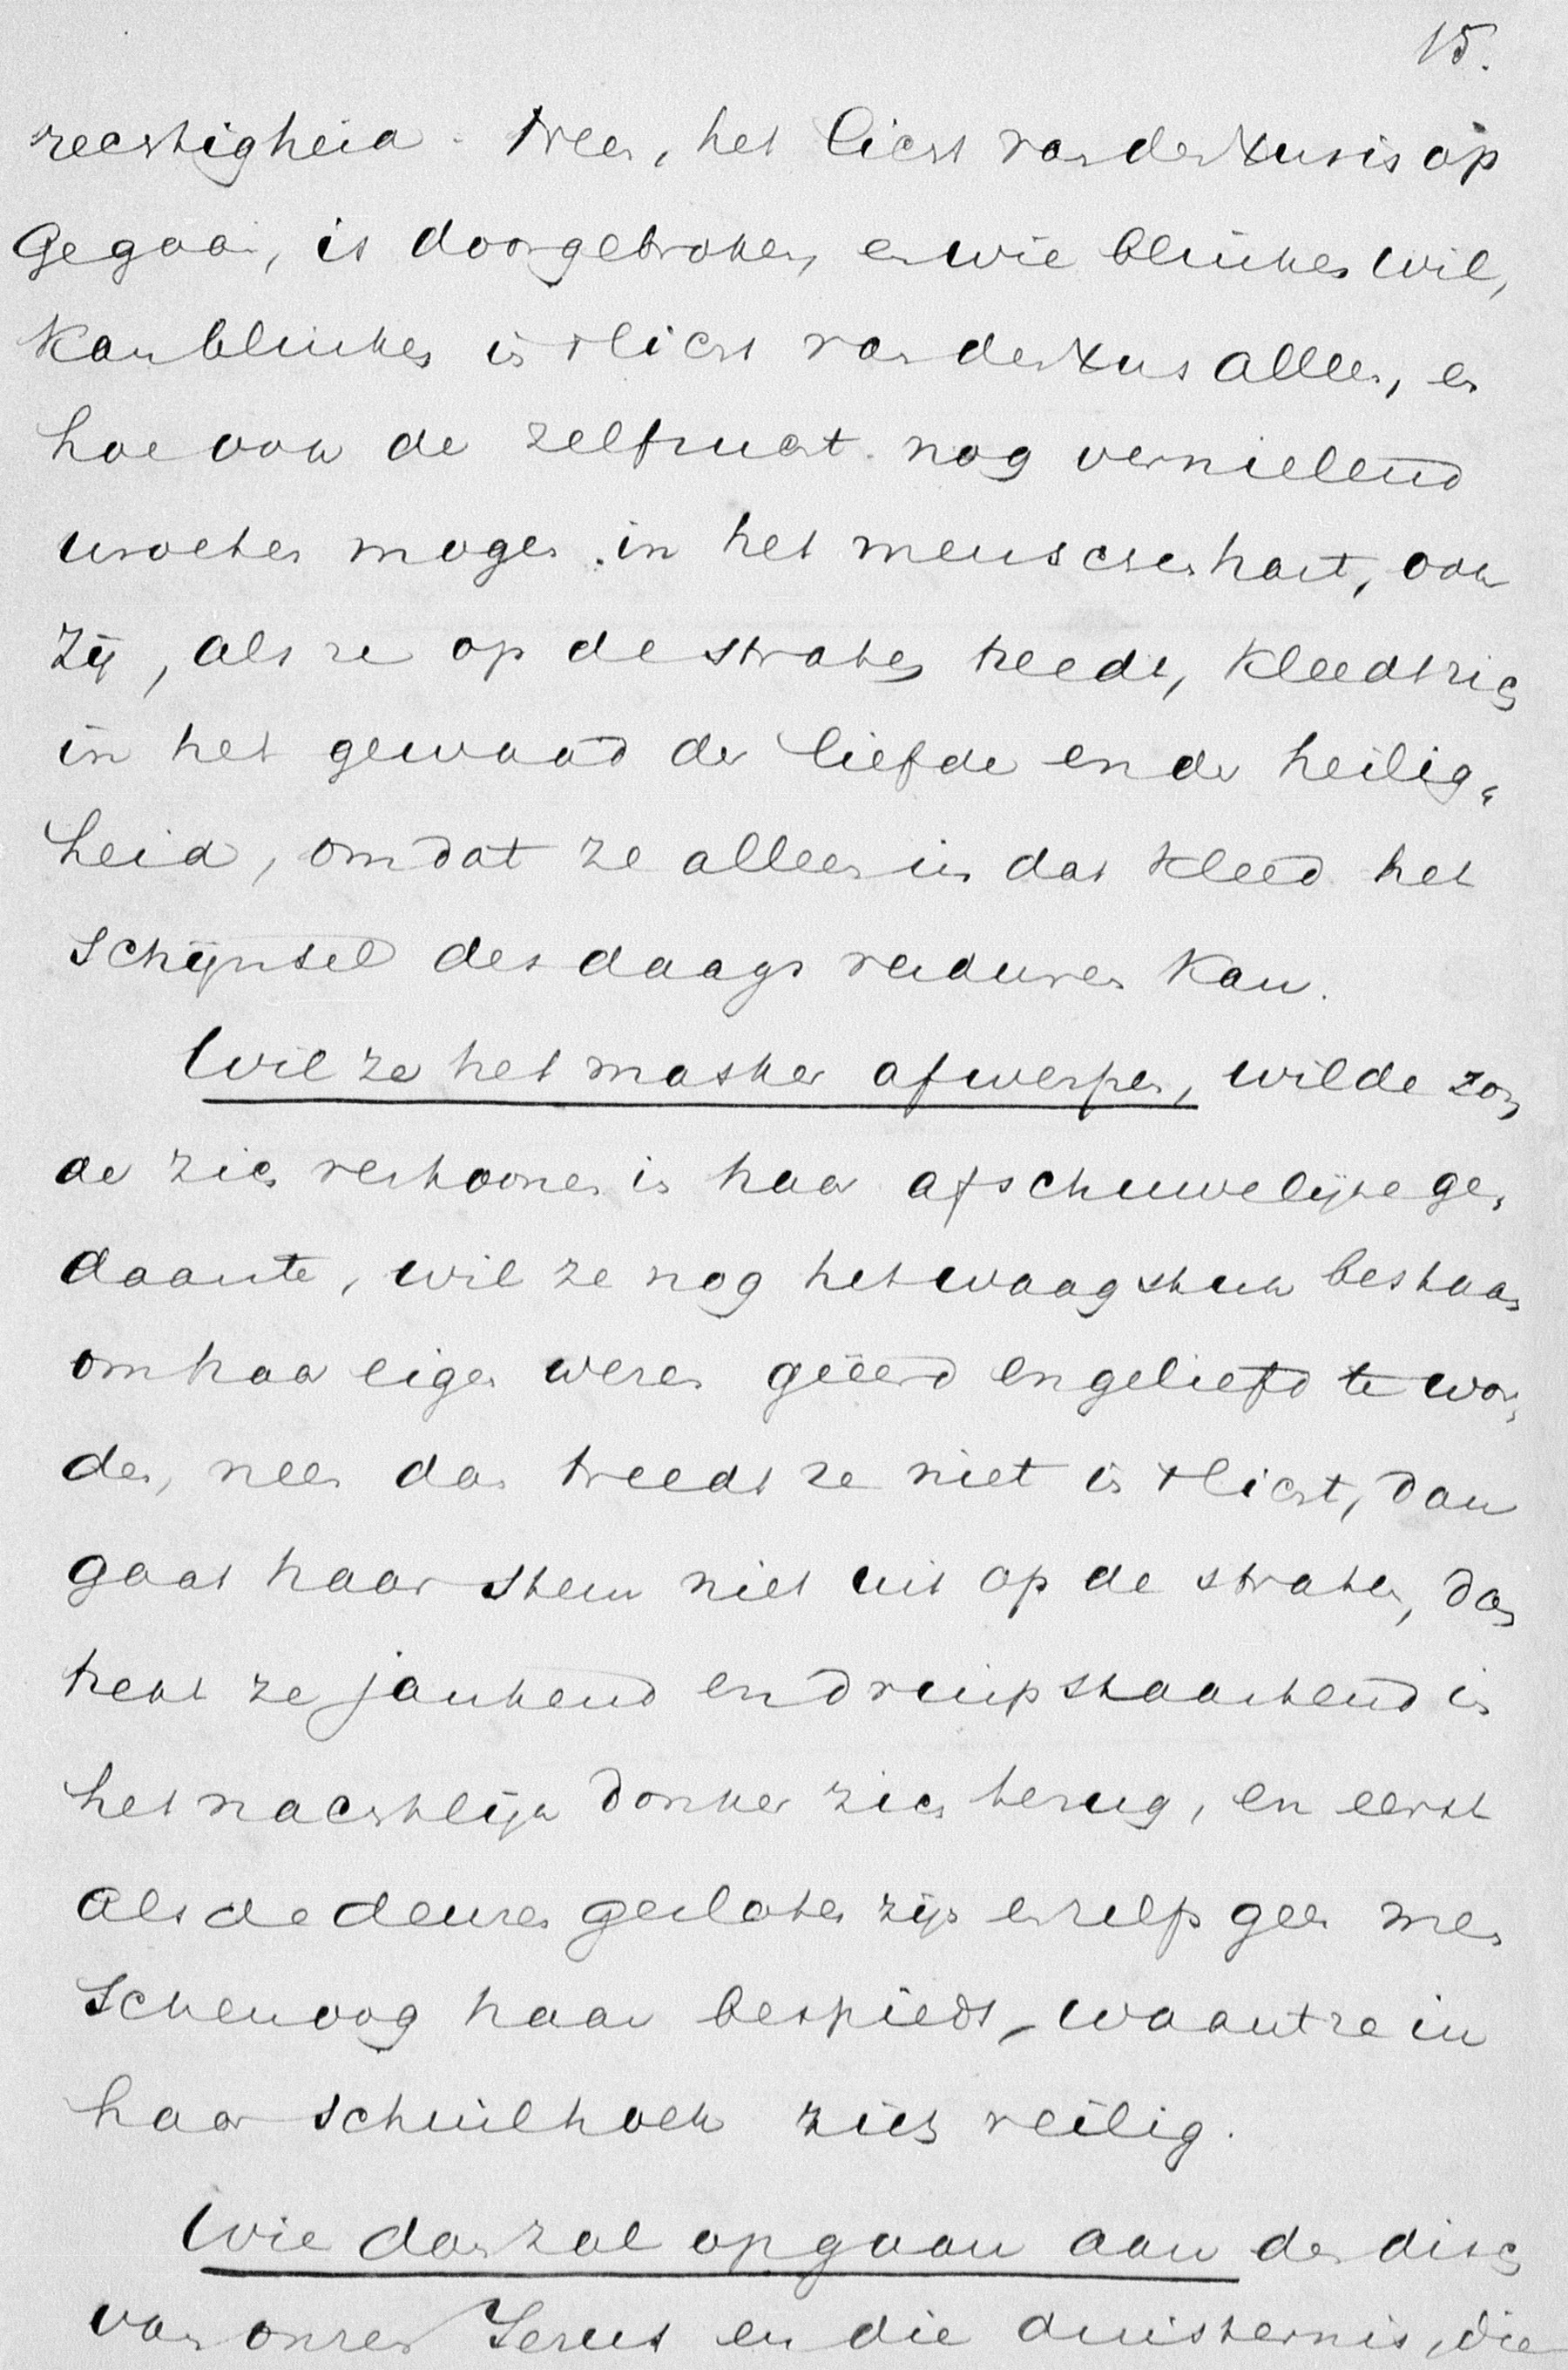 15.
rechtigheid. Neen, het licht van den Xus is op
gegaan, is doorgebroken, en wie blinken wil,
kan blinken in 't licht van den Xus alleen, en
hoe ook de zelfzucht nog vernielend
wroeten moge in het menschenhart, ook
zij, als ze op de straten treedt, kleedt zich
in het gewaad der liefde en der heilig„
heid, omdat ze alleen in dat kleed het
schijnsel des daags verduren kan.
Wil ze het masker afwerpen, wil de zon„
de zich vertoonen in haar afschuwelijke ge„
daante, wil ze nog het waagstuk bestaan
om haar eigen wezen geëerd en geliefd te wor„
den, neen dan treedt ze niet in 't licht, dan
gaat haar stem niet uit op de straten, dan
trekt ze jankend en druipstaartend in
het nachtelijk donker zich terug, en eerst
als de deuren gesloten zijn en zelfs geen men
schenoog haar bespiedt, waant ze in
haar schuilhoek zich veilig.
Wie dan zal opgaan aan den disch
van onzen Jezus en die duisternis, die